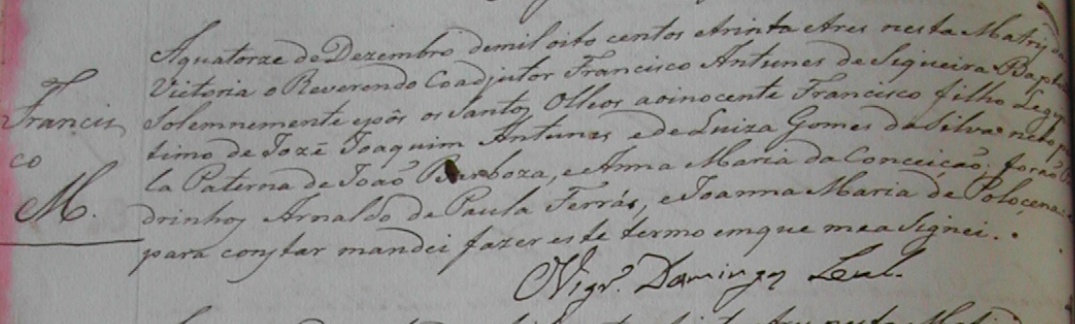 Aquatorze de Dezembro demil oito centos etrinta etres nesta Matris da
Victoria o Reverendo Coadjutor Francisco Antunes de Siqueira Bapti
Francis
co
M.
Solemnemente epôs os Santos Olleos aoinocente Francisco filho Legi
timo de Jozé Joaquim Antunes, ede Luiza Gomes da Silva neto pe
la Paterna de João Barboza, e Anna Maria da Conceição; forão Pa
drinhos Arnaldo de Paula Ferrás, e Joanna Maria de
para constar mandei fazer este termo emque mea Signei.
O Vigr.º Domingos Leal.